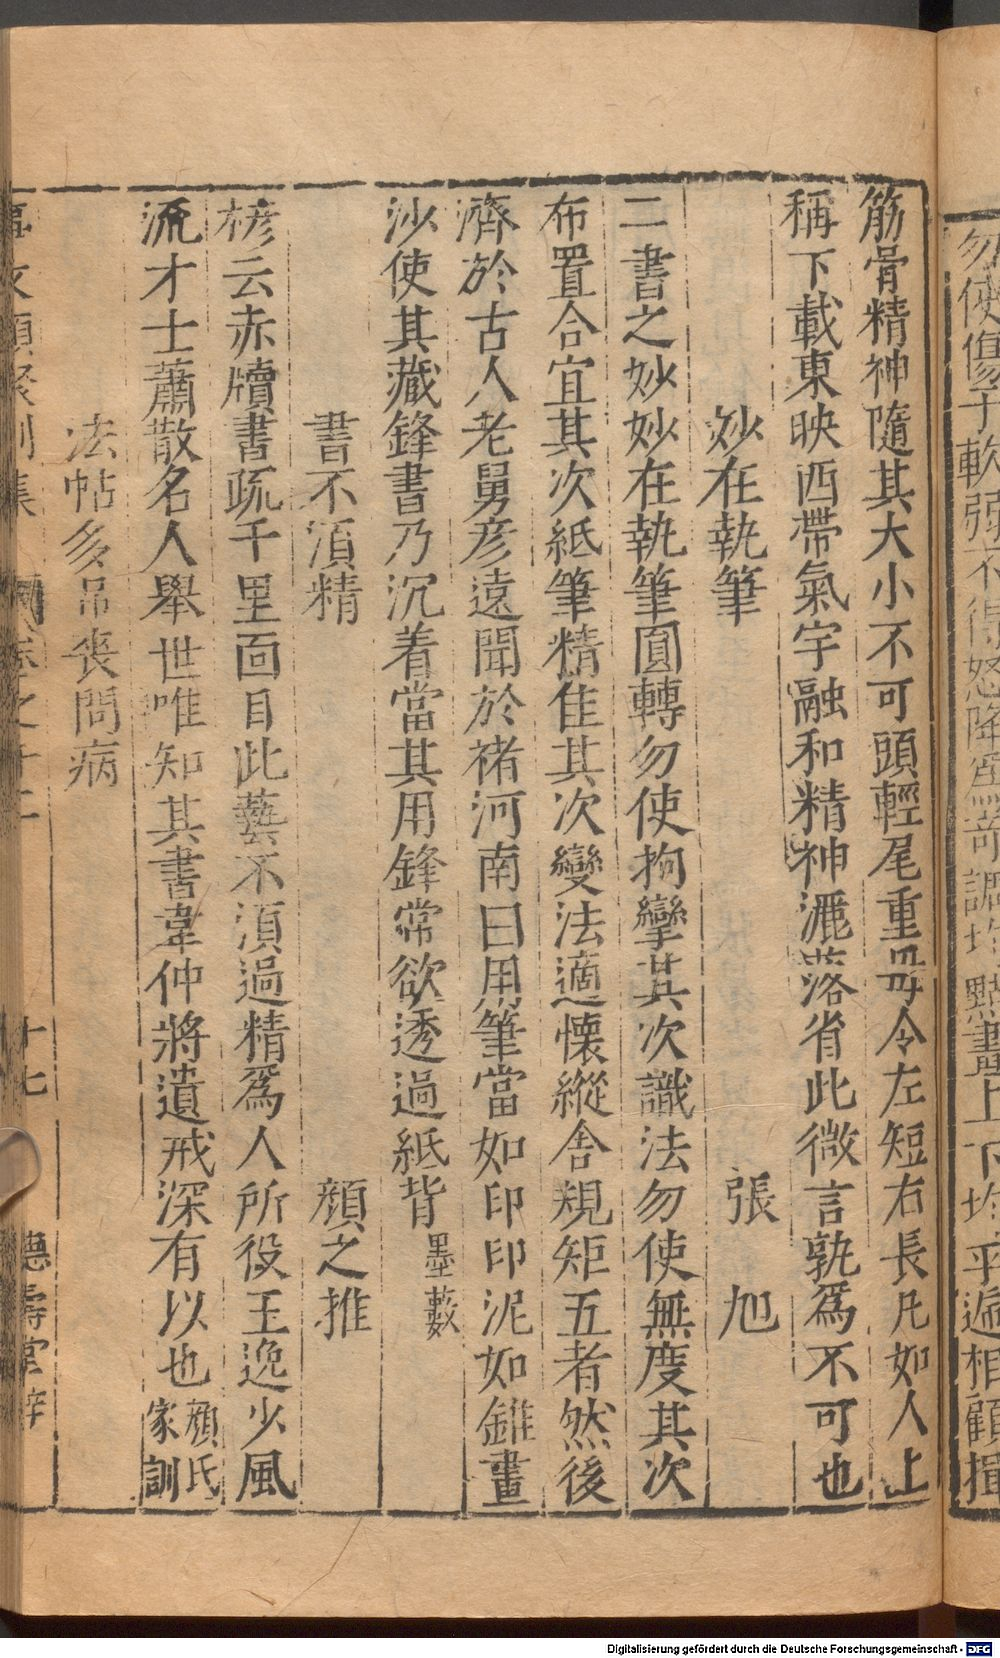 勿使傷于軟弱不得怒降爲奇調均點畫上下均平遞相顧揖
筋骨精神隨其大小不可頭輕尾重毋令左短右長凡如人上
稱下載東映西帶氣宇融和精神洒落省此微言孰爲不可也
妙在執筆　張　旭
二書之妙妙在執筆圓轉勿使拘攣其次識法勿使無度其次
布置合宜其次紙筆精佳其次變法適懷縱舍規矩五者然後
濟於古人老舅彦遠聞於褚河南曰用筆當如印印泥如錐畫
沙使其藏鋒書乃沉着當其用鋒常欲透過紙背墨藪
書不湏精　顔之推
諺云赤牘書疏千里面目此藝不湏過精爲人所役王逸少風
流才士蕭散名人舉世唯知其書韋仲將遺戒深有以也顔氏家訓
法帖多吊丧問病
事文類聚別集　卷之十二　十七　德壽堂梓
Digitalisierung gefördert durch die Deutsche Forschungsgemeinschaft - DFG